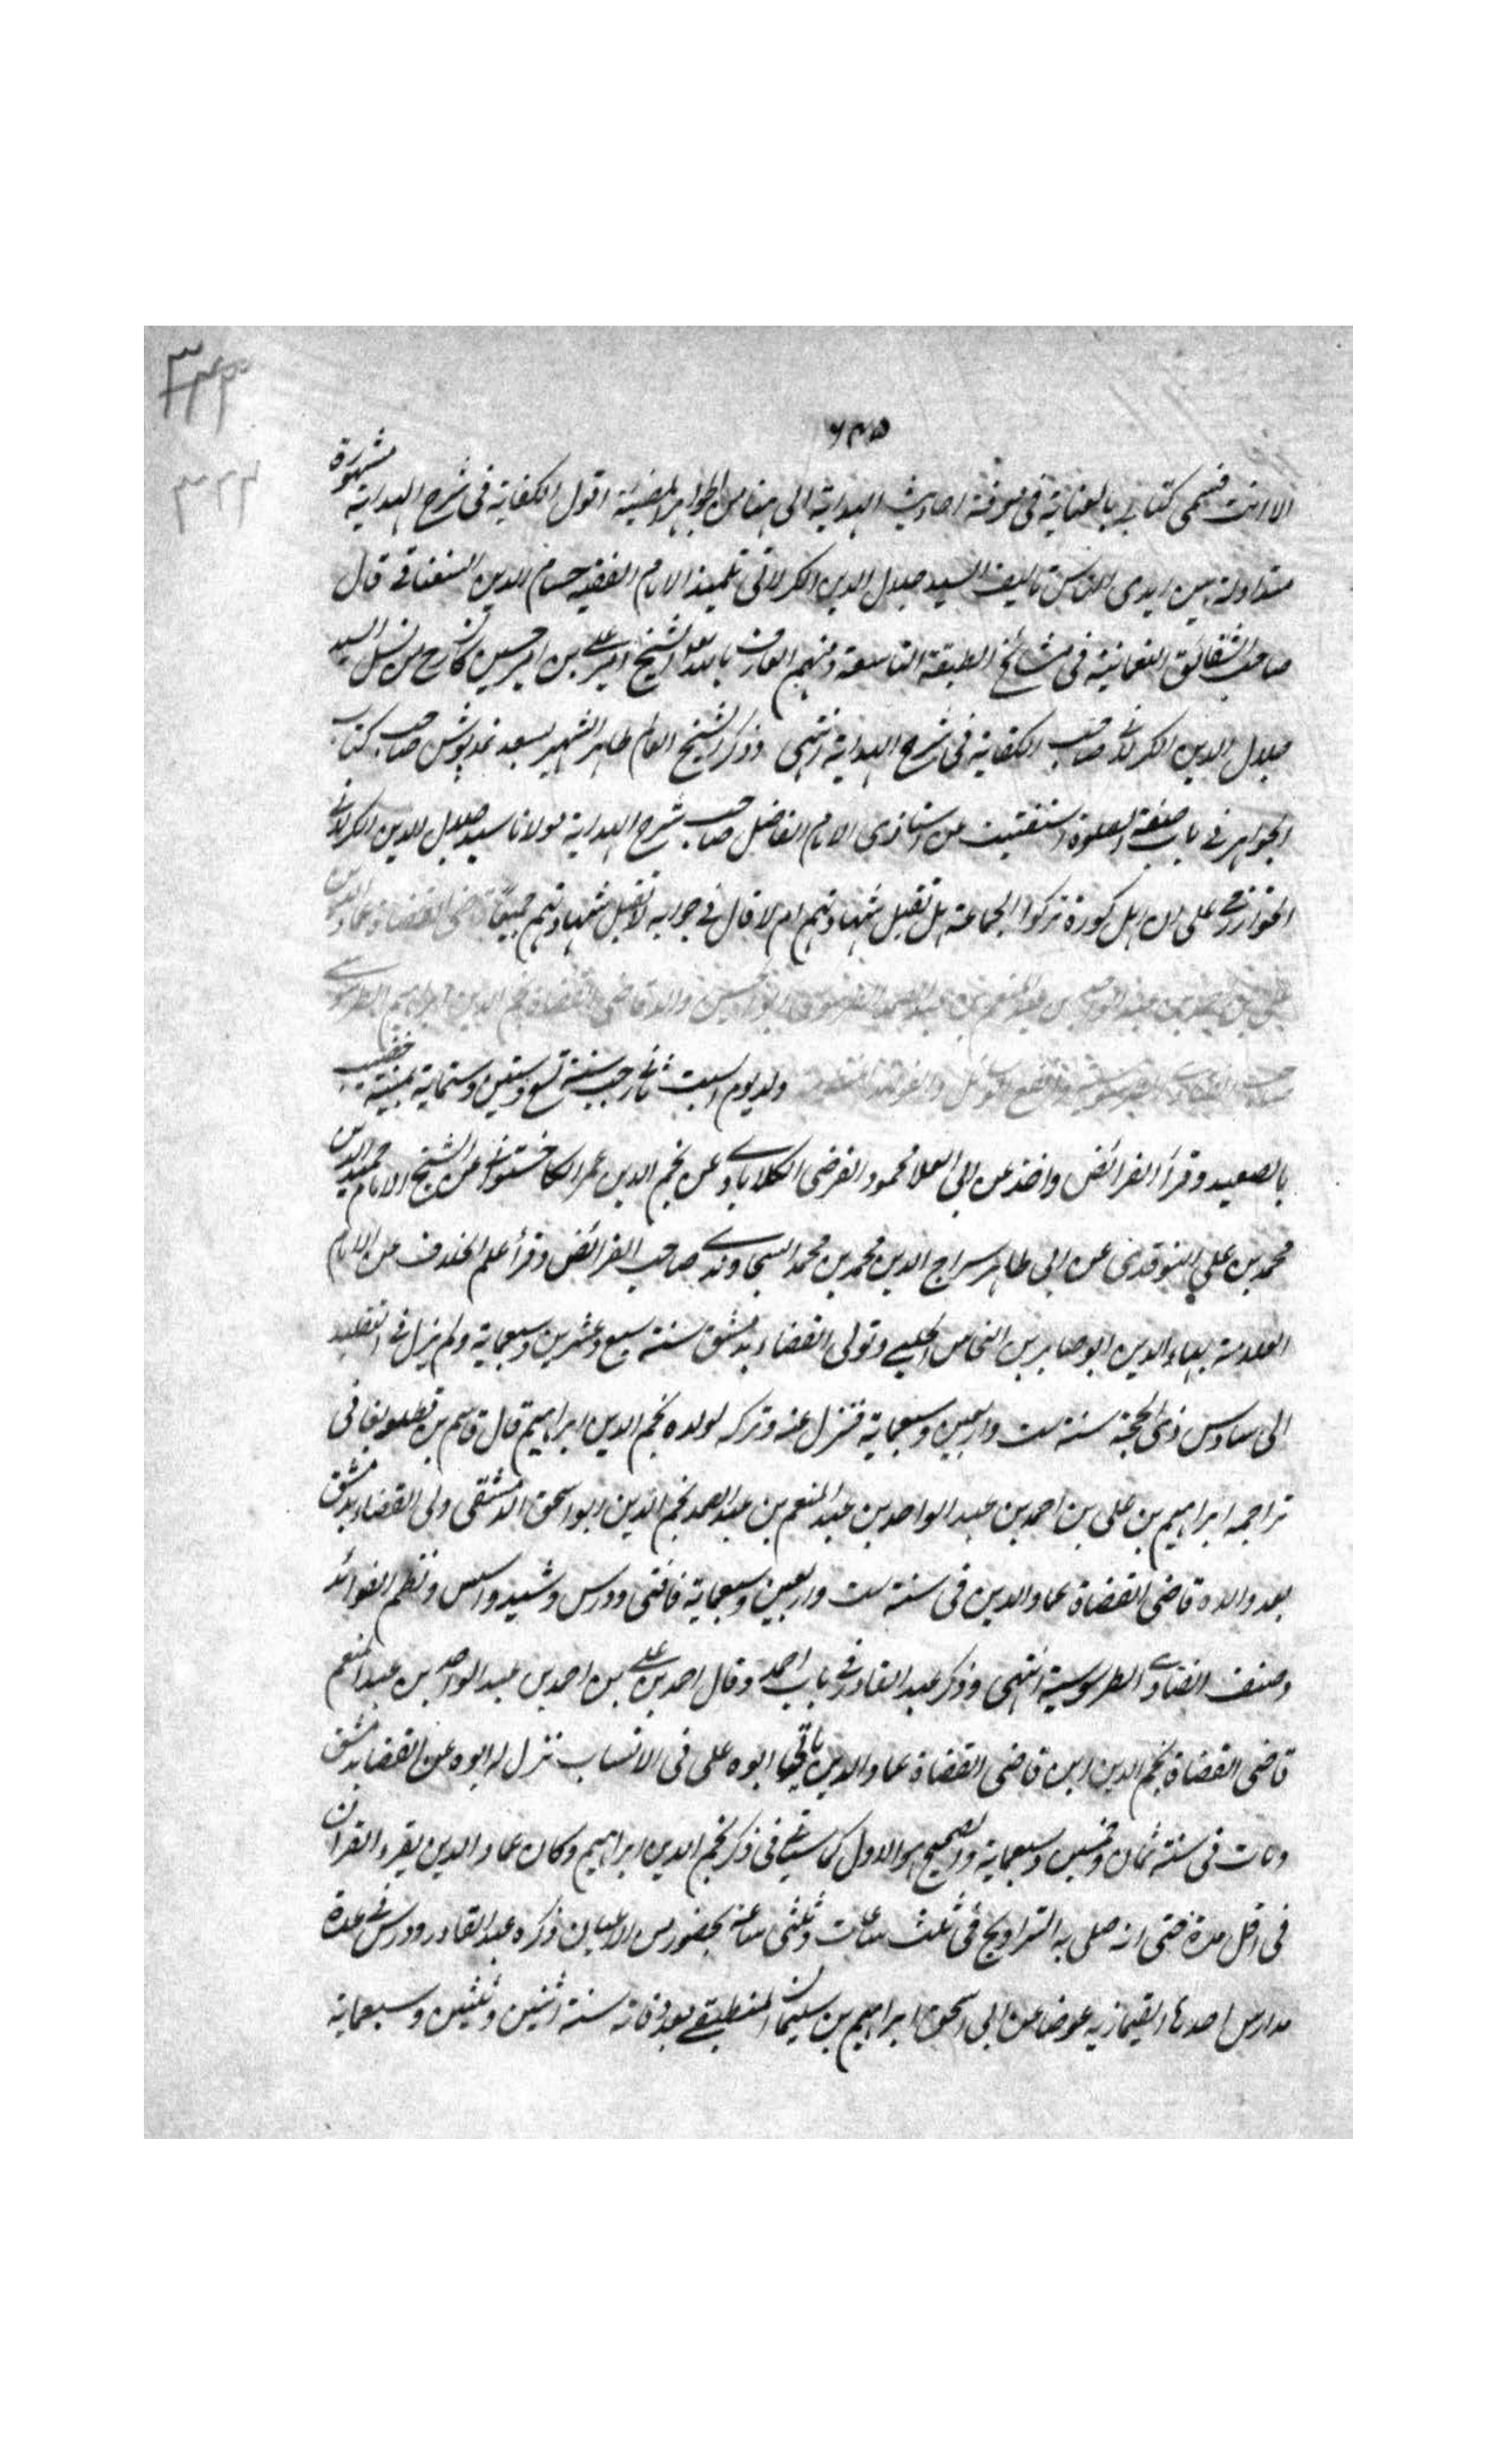 ٣٢٣
٣٢٤
٦٤٥
الا انت فسمى كتابى بالعناية فى معرفة احاديث الهداية الى هنا من الجواهر المضيئة اقول الكفاية فى شرح الهداية مشهورة
متداولة بين ايدى الناس تاليف السيد جلال الدين الكرلانى تلميذ الامام الفقيه حسام الدين السغناقى قال
صاحب الشقائق النعمانية فى مشائخ الطبقة التاسعة ومنهم العارف بالله تعالى الشيخ امير على بن امير حسين كان من نسل السيد
جلال الدين الكرلانى صاحب الكفاية فى شرح الهداية انتهى وذكر الشيخ العالم طاهر الشهير بسعد نمدپوش صاحب كتاب
الجواهر فى باب صفة الصلوة استفتيت عن استاذى الامام الفاضل صاحب شرح الهداية مولانا سيد جلال الدين الكرلانى
الخوارزمى على ان اهل كورة تركوا الجماعة هل تقبل شهادتهم ام لا قال فى جوابه لا تقبل شهادتهم جميعًا قاضى القضاة عماد الدين
على بن احمد بن عبد الواحد بن عبد المنعم بن عبد الصمد الطرسوسى ابو الحسن والد قاضى القضاة نجم الدين ابراهيم الطرسوسى
صاحب الفتاوى الطرسوسية وانفع الوسائل والفوائد ولد يوم السبت ثانى رجب سنة تسع وستين وستماية بمنية خصيب
بالصعيد وقرأ الفرائض واخذ عن ابى العلا محمود الفرضى الكلاباذى عن نجم الدين عمر الكاخشتوانى عن الشيخ الامام حميد الدين
محمد بن على النوقدى عن ابى طاهر سراج الدين محمد بن محمد السجاوندى صاحب الفرائض وقرأ علم الخلاف عن الامام
العلامة بهاء الدين ابو صابر بن النحاس الحلبى وتولى القضاء بدمشق سنة سبع وعشرين وسبعماية ولم يزل فى التقليد
الى سادس ذى الحجة سنة ست واربعين وسبعماية فنزل عنه وتركه لولده نجم الدين ابراهيم قال قاسم بن قطلوبغا فى
تراجمه ابراهيم بن على بن احمد بن عبد الواحد بن عبد المنعم بن عبد الصمد نجم الدين ابو اسحق الدمشقى ولى القضاء بدمشق
بعد والده قاضى القضاة عماد الدين فى سنة ست واربعين وسبعماية فافتى ودرس وشيد واسس ونظم الفوائد
وصنف الفتاوى الطرسوسية انتهى وذكر عبد القادر فى باب احمد وقال احمد بن على بن احمد بن عبد الواحد بن عبد المنعم
قاضى القضاة نجم الدين ابن قاضى القضاة عماد الدين ياتى ابوه على فى الانساب نزل له ابوه عن القضا بدمشق
ومات فى سنة ثمان وخمسين وسبعماية والصحيح هو الاول كما سياتى فى ذكر نجم الدين ابراهيم وكان عماد الدين يقرء القران
فى اقل مدة حتى انه صلى به التراويح فى ثلث ساعات وثلثى ساعة بحضور من الاعيان ذكره عبد القادر ودرس فى عدة
مدارس احدها القيمازية عوضا عن ابى اسحق ابراهيم بن سليمان المنطيقى بعد وفاته سنة اثنين وثلثين وسبعماية